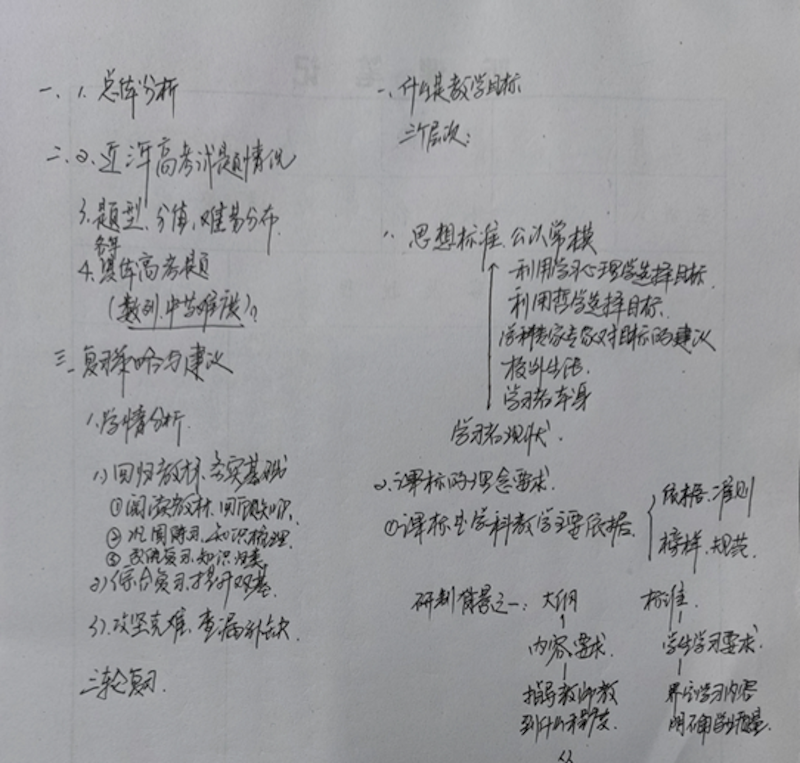 一、1. 总体分析
二、2. 近三年高考试题情况
3. 题型、分值、难易分布
各年
4. 具体高考题
(数列,中等难度)。
三、复习策略与建议
1. 学情分析
1) 回归教材 夯实基础
① 阅读教材,回顾知识.
② 巩固练习,知识梳理.
③ 复习 知识归类
2) 综合复习,提升双基.
3). 攻坚克难,查漏补缺.
三轮复习.
一、什么是教学目标
三个层次:
1、思想标准 公认常模
利用学习心理学选择目标.
利用哲学选择目标.
学科专家对目标的建议
校外生活.
学习者本身
学习者现状.
2、课标的理念要求.
①课标是学科教学主要依据.
依据、准则
榜样、规范
研制背景之一: 大纲 标准.
内容要求. 学生学习要求.
指导教师教 界定学习内容
到什么程度. 明确学业质量.